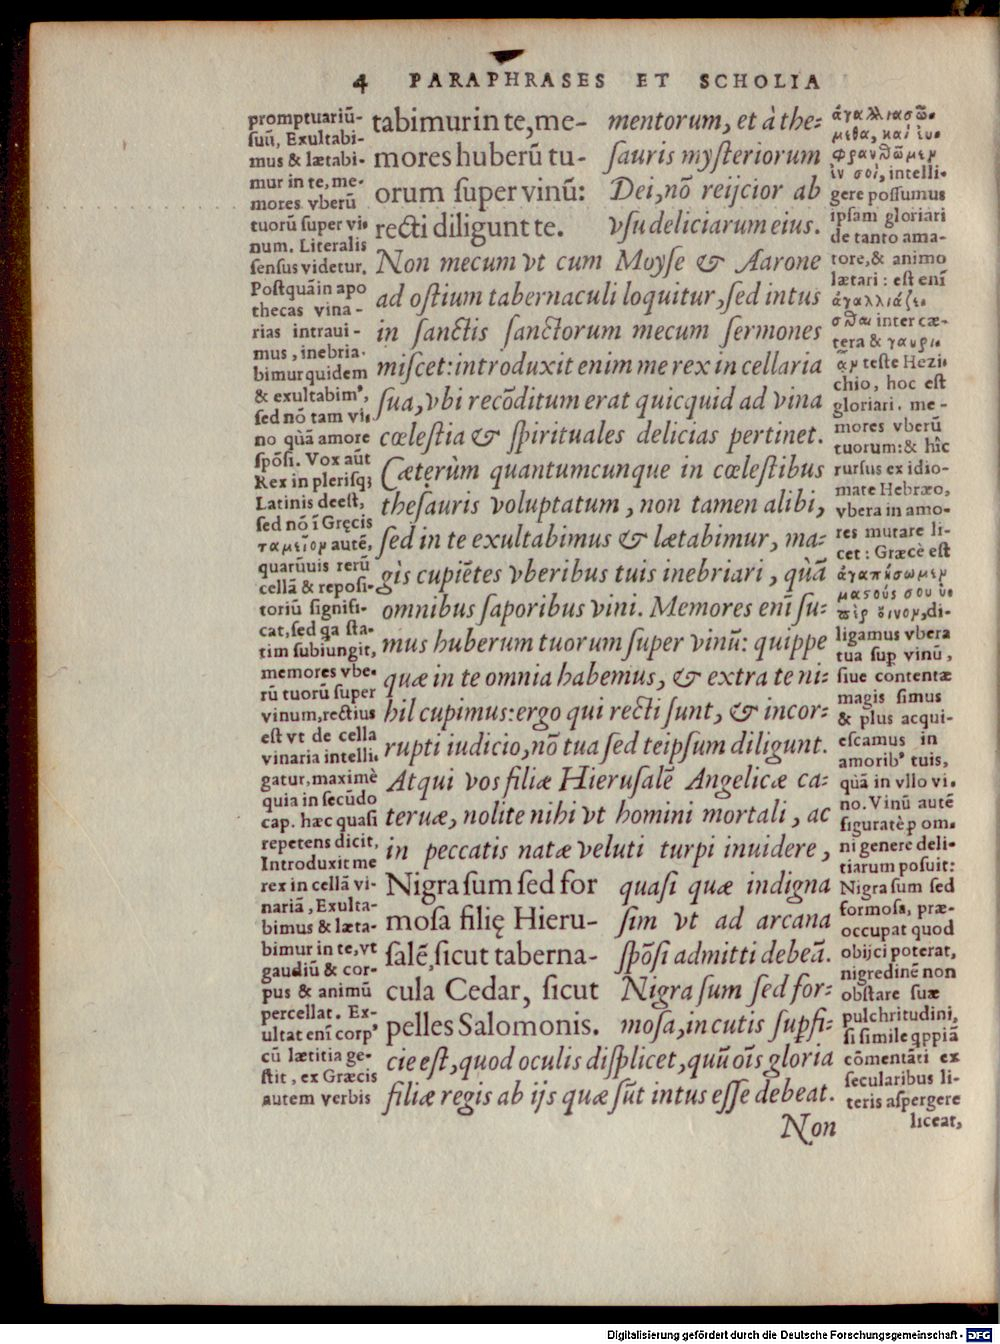 4 PARAPHRASES ET SCHOLIA
promptuariũ-
suũ, Exultabi-
mus & lætabi-
mur in te, me-
mores vberũ
tuorũ super vi-
num. Literalis
sensus videtur.
Postquã in apo
thecas vina-
rias intraui-
mus, inebria-
bimur quidem
& exultabimꝰ,
sed nõ tam vi-
no quã amore
spõsi. Vox aũt
Rex in plerisqꝫ
Latinis deest,
sed nõ ĩ Gręcis
ταμεῖον autẽ,
quarũuis rerũ
cellã & reposi-
toriũ signifi-
cat, sed qa sta-
tim subiũngit,
memores vbe-
rũ tuorũ super
vinum, rectius
est vt de cella
vinaria intelli-
gatur, maximè
quia in secũdo
cap. hæc quasi
repetens dicit,
Introduxit me
rex in cellã vi-
nariã, Exulta-
bimus & læta-
bimur in te, vt
gaudiũ & cor-
pus & animũ
percellat. Ex-
ultat enĩ corpꝰ
cũ lætitia ge-
stit, ex Græcis
autem verbis
tabimur in te, me-
mores huberũ tu-
orum super vinũ:
recti diligunt te.
mentorum, et à the-
sauris mysteriorum
Dei, nõ reijcior ab
vsu deliciarum eius.
Non mecum vt cum Moyse & Aarone
ad ostium tabernaculi loquitur, sed intus
in sanctis sanctorum mecum sermones
miscet: introduxit enim me rex in cellaria
sua, vbi recõditum erat quicquid ad vina
cœlestia & spirituales delicias pertinet.
Cæterùm quantumcunque in cœlestibus
thesauris voluptatum, non tamen alibi,
sed in te exultabimus & lætabimur, ma-
gis cupiẽtes vberibus tuis inebriari, quã
omnibus saporibus vini. Memores enĩ su-
mus huberum tuorum super vinũ: quippe
quæ in te omnia habemus, & extra te ni-
hil cupimus: ergo qui recti sunt, & incor-
rupti iudicio, nõ tua sed teipsum diligunt.
Atqui vos filiæ Hierusalẽ Angelicæ ca-
teruæ, nolite nihi vt homini mortali, ac
in peccatis natæ veluti turpi inuidere,
Nigra sum sed for
mosa filię Hieru-
salẽ, sicut taberna-
cula Cedar, sicut
pelles Salomonis.
quasi quæ indigna
sim vt ad arcana
spõsi admitti debeã.
Nigra sum sed for-
mosa, in cutis supfi-
cie est, quod oculis displicet, quũ oĩs gloria
filiæ regis ab ijs quæ sũt intus esse debeat.
ἀγαλλιασώ-
μεθα, καὶ ἐυ-
φρανθῶμεν
ἐν σοὶ, intelli-
gere possumus
ipsam gloriari
de tanto ama-
tore, & animo
lætari: est enĩ
ἀγαλλιάζε-
σθαι inter cæ-
tera & γαυρι-
ᾷν teste Hezi-
chio, hoc est
gloriari. me-
mores vberũ
tuorum: & hîc
rursus ex idio-
mate Hebræo,
vbera in amo-
res mutare li-
cet: Græcè est
ἀγαπήσωμεν
μαστούς σου ὑ-
πὲρ ὄινον, di-
ligamus vbera
tua sup vinũ,
siue contentæ
magis simus
& plus acqui-
escamus in
amoribꝰ tuis,
quã in vllo vi-
no. Vinũ autẽ
figuratè ꝓ om-
ni genere deli-
tiarum posuit:
Nigra sum sed
formosa, præ-
occupat quod
obijci poterat,
nigredinẽ non
obstare suæ
pulchritudini,
si simile qppiã
cõmentãti ex
secularibus li-
teris aspergere
liceat,
Non
Digitalisierung gefördert durch die Deutsche Forschungsgemeinschaft - DFG